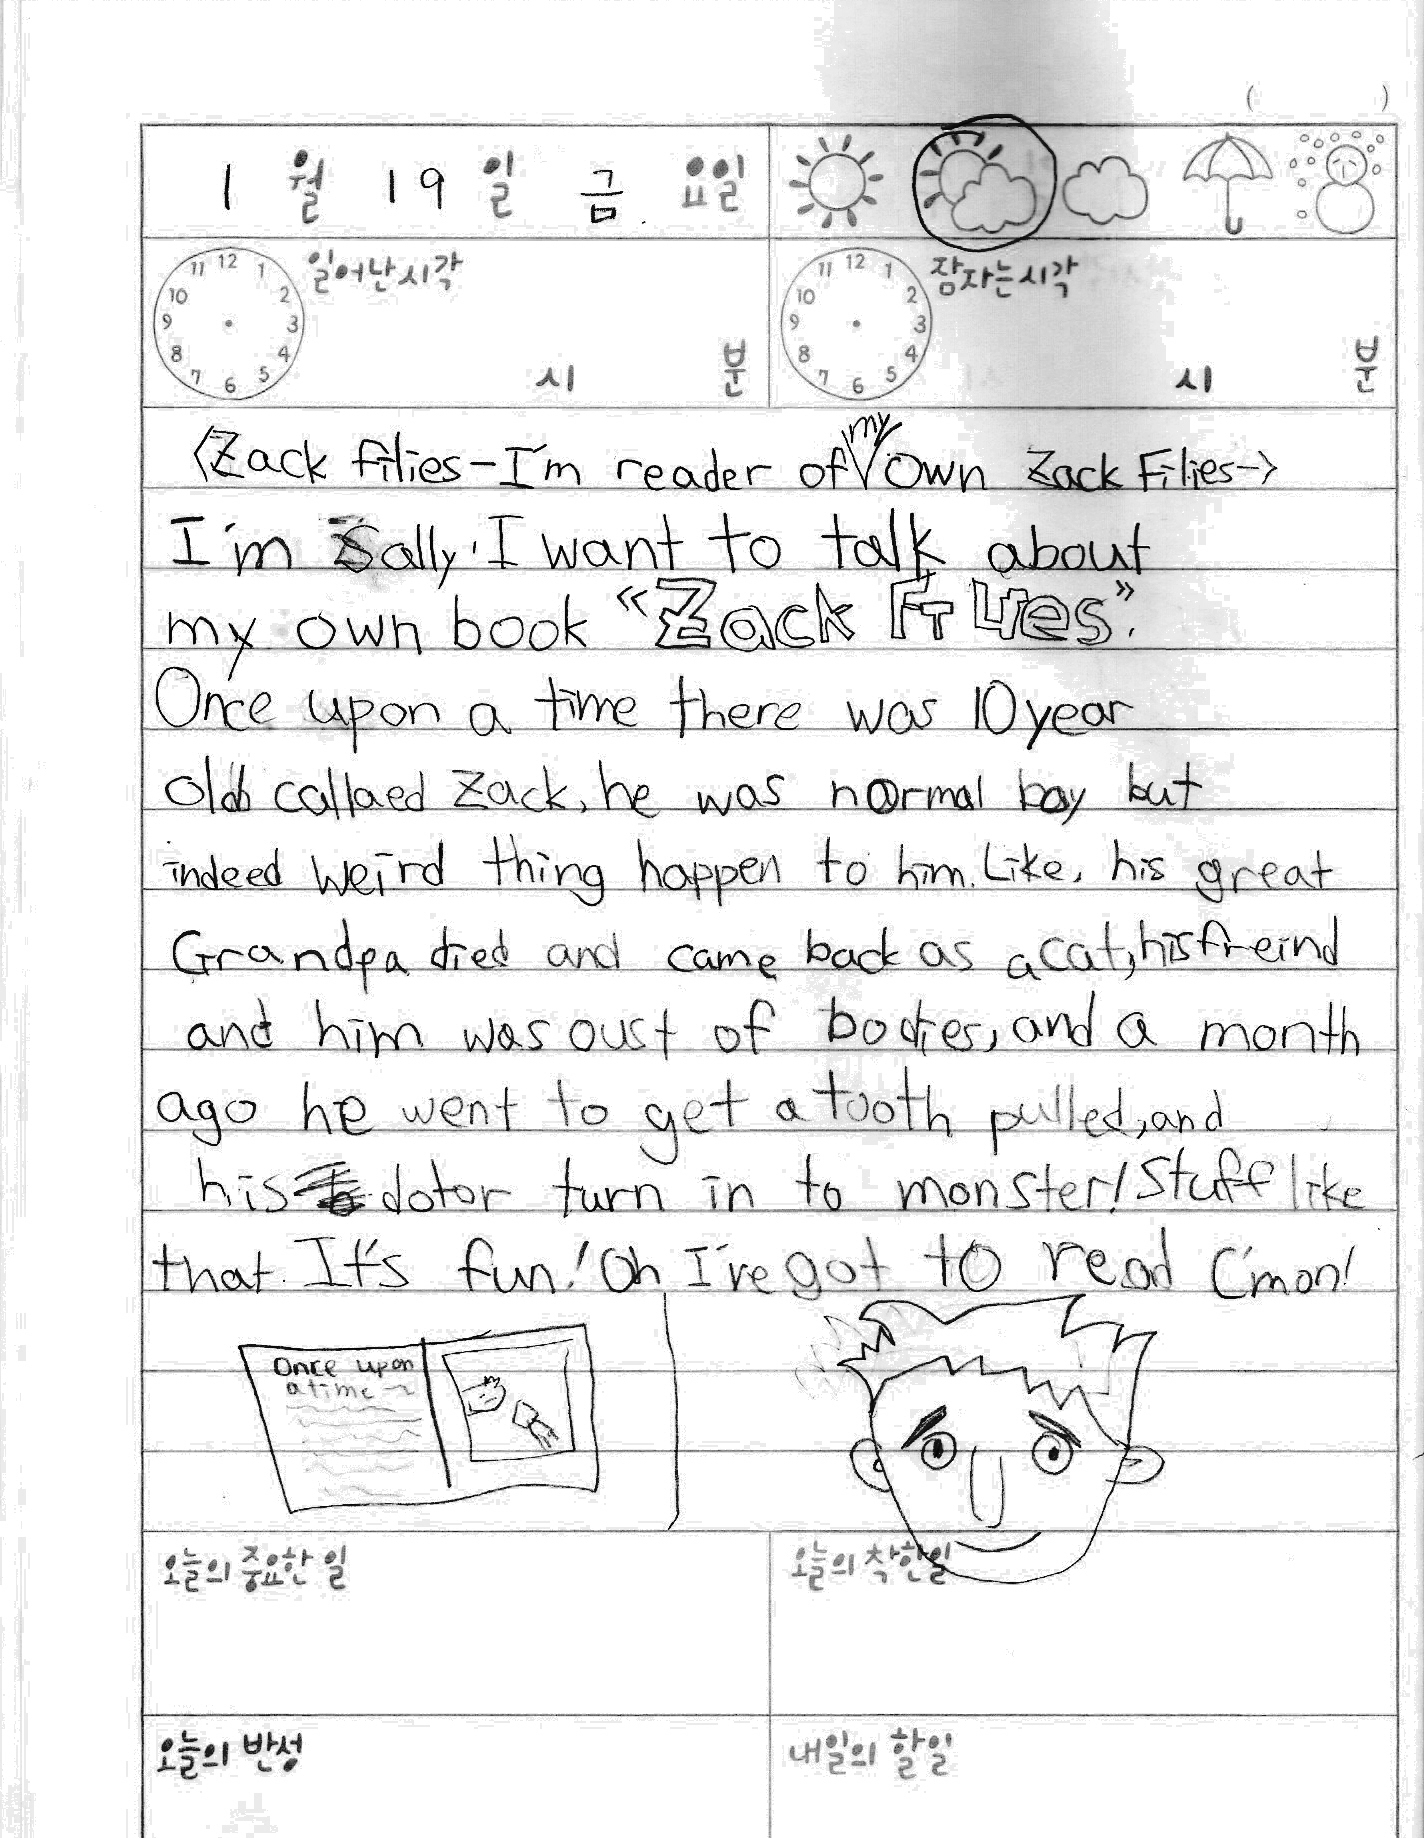 ( )
1 월 19 일 금 요일
12 1 2 3 4 5 6 7 8 9 10 11
일어난시각
시 분
12 1 2 3 4 5 6 7 8 9 10 11
잠자는시각
시 분
<Zack filies-I'm reader of my own Zack Filies->
I'm Sally. I want to talk about
my own book "Zack Filies".
Once upon a time there was 10 year
old callaed Zack, he was normal boy but
indeed weird thing happen to him. Like, his great
Grandpa died and came back as a cat, his freind
and him was oust of bodies, and a month
ago he went to get a tooth pulled, and
his dotor turn in to monster! Stuff like
that. It's fun! Oh I've got to read C'mon!
Once upon
a time ~
오늘의 중요한 일
오늘의 착한일
오늘의 반성
내일의 할일